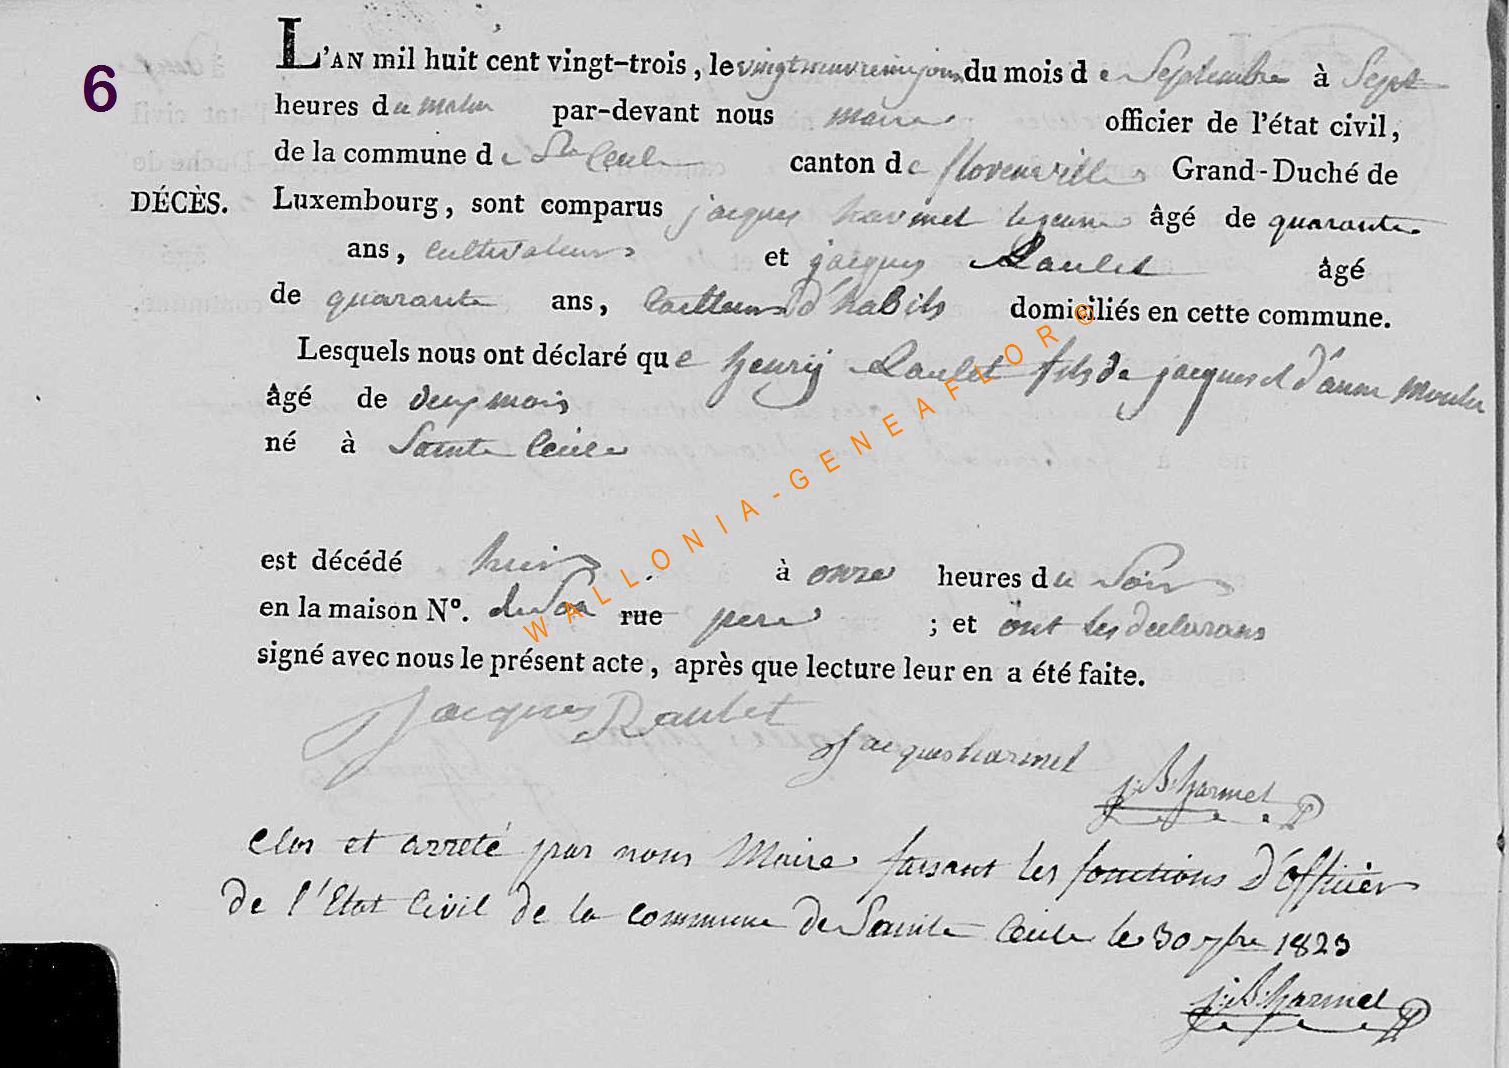 6
L'AN mil huit cent vingt-trois, le vingt neuvieme jour du mois de Septembre à Sept
heures du matin par-devant nous maire officier de l'état civil,
de la commune de Ste Cecile canton de florenville Grand-Duché de
DÉCÈS. Luxembourg, sont comparus jacques harmel le jeune âgé de quarante
ans, cultivateur et jacques Raulet âgé
de quarante ans, tailleur d'habits domiciliés en cette commune.
Lesquels nous ont déclaré que henrij Raulet fils de jacques et d'anne
âgé de deux mois
né à Sainte Cecile
est décédé hier à onze heures du Soir
en la maison N°. de Son rue pere ; et ont les declarans
signé avec nous le présent acte, après que lecture leur en a été faite.
Jacques Raulet
Jacques harmel
j:B:harmel
Clos et arreté par nous Maire faisant les fonctions d'officier
de l'Etat Civil de la commune de Sainte Cecile le 30 7bre 1823
j:B:harmel
WALLONIA-GENEAFLOR ©